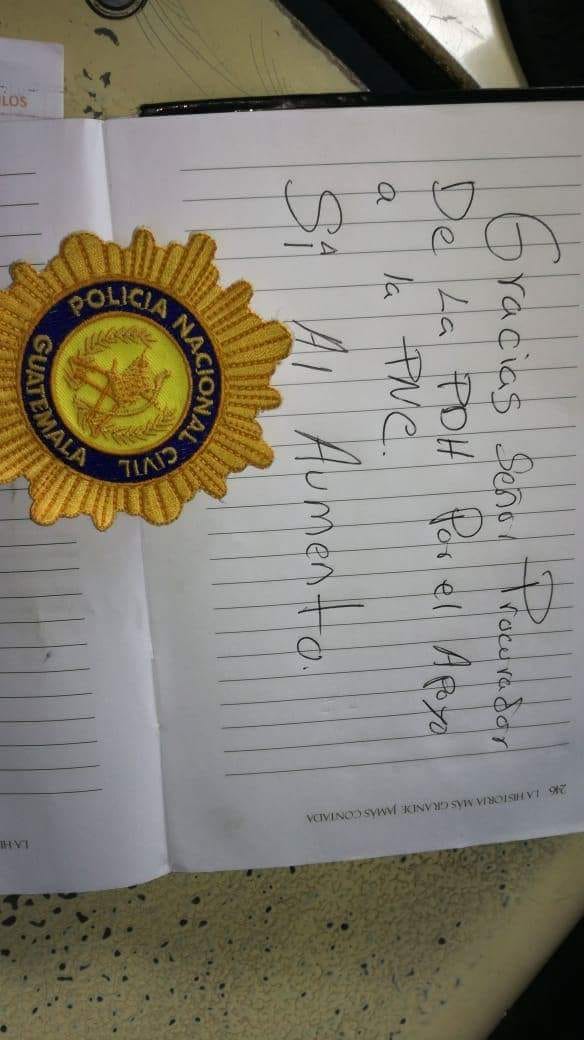 Gracias Señor Procurador
De La PDH Por el Apoyo
a la PNC.
Sí Al Aumento.
POLICIA NACIONAL CIVIL
GUATEMALA
246 | LA HISTORIA MÁS GRANDE JAMÁS CONTADA